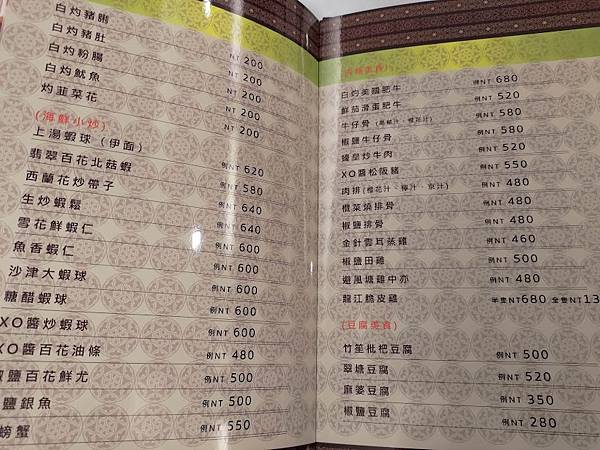 白灼豬腸 NT 200
白灼豬肚 NT 200
白灼粉腸 NT 200
白灼魷魚 NT 200
灼韮菜花 NT 200
(海鮮小炒)
上湯蝦球（伊面） 例NT 620
翡翠百花北菇蝦 例NT 580
西蘭花炒帶子 例NT 640
生炒蝦鬆 例NT 640
雪花鮮蝦仁 例NT 600
魚香蝦仁 例NT 600
沙津大蝦球 例NT 600
糖醋蝦球 例NT 600
XO醬炒蝦球 例NT 600
XO醬百花油條 例NT 480
椒鹽百花鮮尤 例NT 500
鹽銀魚 例NT 500
螃蟹 例NT 550
白灼美國肥牛 例NT 680
鮮茄滑蛋肥牛 例NT 520
牛仔骨 例NT 580
椒鹽牛仔骨 例NT 580
蠔皇炒牛肉 例NT 520
XO醬松阪豬 例NT 550
肉排(橙花汁、檸汁、京汁) 例NT 480
欖菜燒排骨 例NT 480
椒鹽排骨 例NT 480
金針雲耳蒸雞 例NT 460
椒鹽田雞 例NT 500
避風塘雞中亦 例NT 480
龍江脆皮雞 半隻NT680 全隻NT13
(豆腐美食)
竹笙枇杷豆腐 例NT 500
翠塘豆腐 例NT 520
麻婆豆腐 例NT 350
椒鹽豆腐 例NT 280